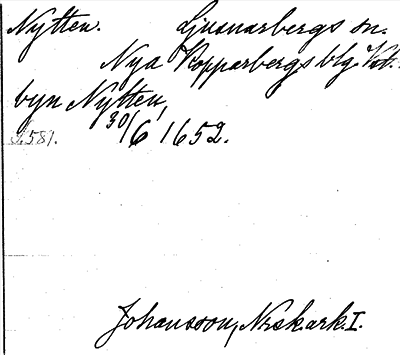 Nytten. Ljusnarbergs sn.
Nya Kopparbergs blg. Vtl.
byn Nytten,
S. 581. 30/6 1652.
Johansson, Nkskark I.